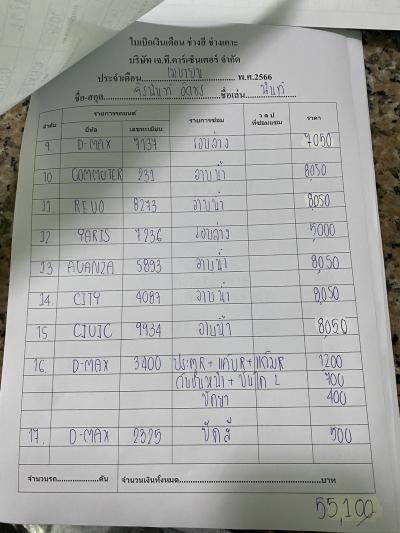 ใบเบิกเงินเดือน ช่างสี ช่างเคาะ
บริษัท เจ.ที.คาร์เซ็นเตอร์ จำกัด
ประจำเดือน เมษายน พ.ศ.2566
ชื่อ-สกุล ชื่อเล่น
รายการรถยนต์
ลำดับ ยี่ห้อ เลขทะเบียน รายการซ่อม ว ด ป ที่ซ่อมแซม ราคา
9 D-MAX 7137 รอบล่าง 7050
10 COMMUTER 231 อาบน้ำ 8050
11. REVO 8273 อาบน้ำ 8050
12 YARIS 7236 รอบล่าง 5000
13 AVANZA 5893 อาบน้ำ 8,050
14. CITY 4087 อาบน้ำ 8,050
15 CIVIC 9934 อาบน้ำ 8050
16. D-MAX 3400 ประตูR+แค้บR+แก้มR 1200
กันชนหน้า + บันได 2 700
ขัดยา 400
17. D-MAX 2325 ขัดสี 500
จำนวนรถ คัน จำนวนเงินทั้งหมด บาท
55,100